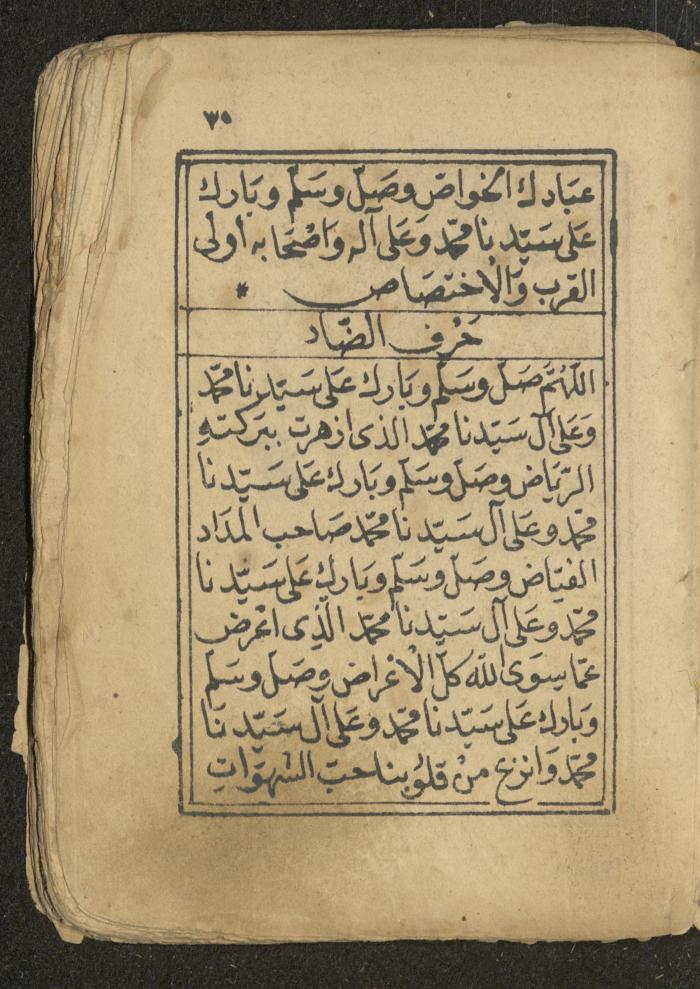 ٣٩
عبادك الخواص وصلّ وسلّم وبارك
على سيّدنا محمّد وعلى آله واصحابه اولى
القرب والاختصاص *
حرف الضّاد
اللهمّ صلّ وسلّم وبارك على سيّدنا محمّد
وعلى آل سيّدنا محمّد الذى ازهرت ببركته
الرّياض وصلّ وسلّم وبارك على سيّدنا
محمّد وعلى آل سيّدنا محمّد صاحب المداد
الفيّاض وصلّ وسلّم وبارك على سيّدنا
محمّد وعلى آل سيّدنا محمّد الذى اعرض
عمّا سوى الله كلّ الاعراض وصلّ وسلّم
وبارك على سيّدنا محمّد وعلى آل سيّدنا
محمّد وانزع من قلوبنا حبّ الشهوات